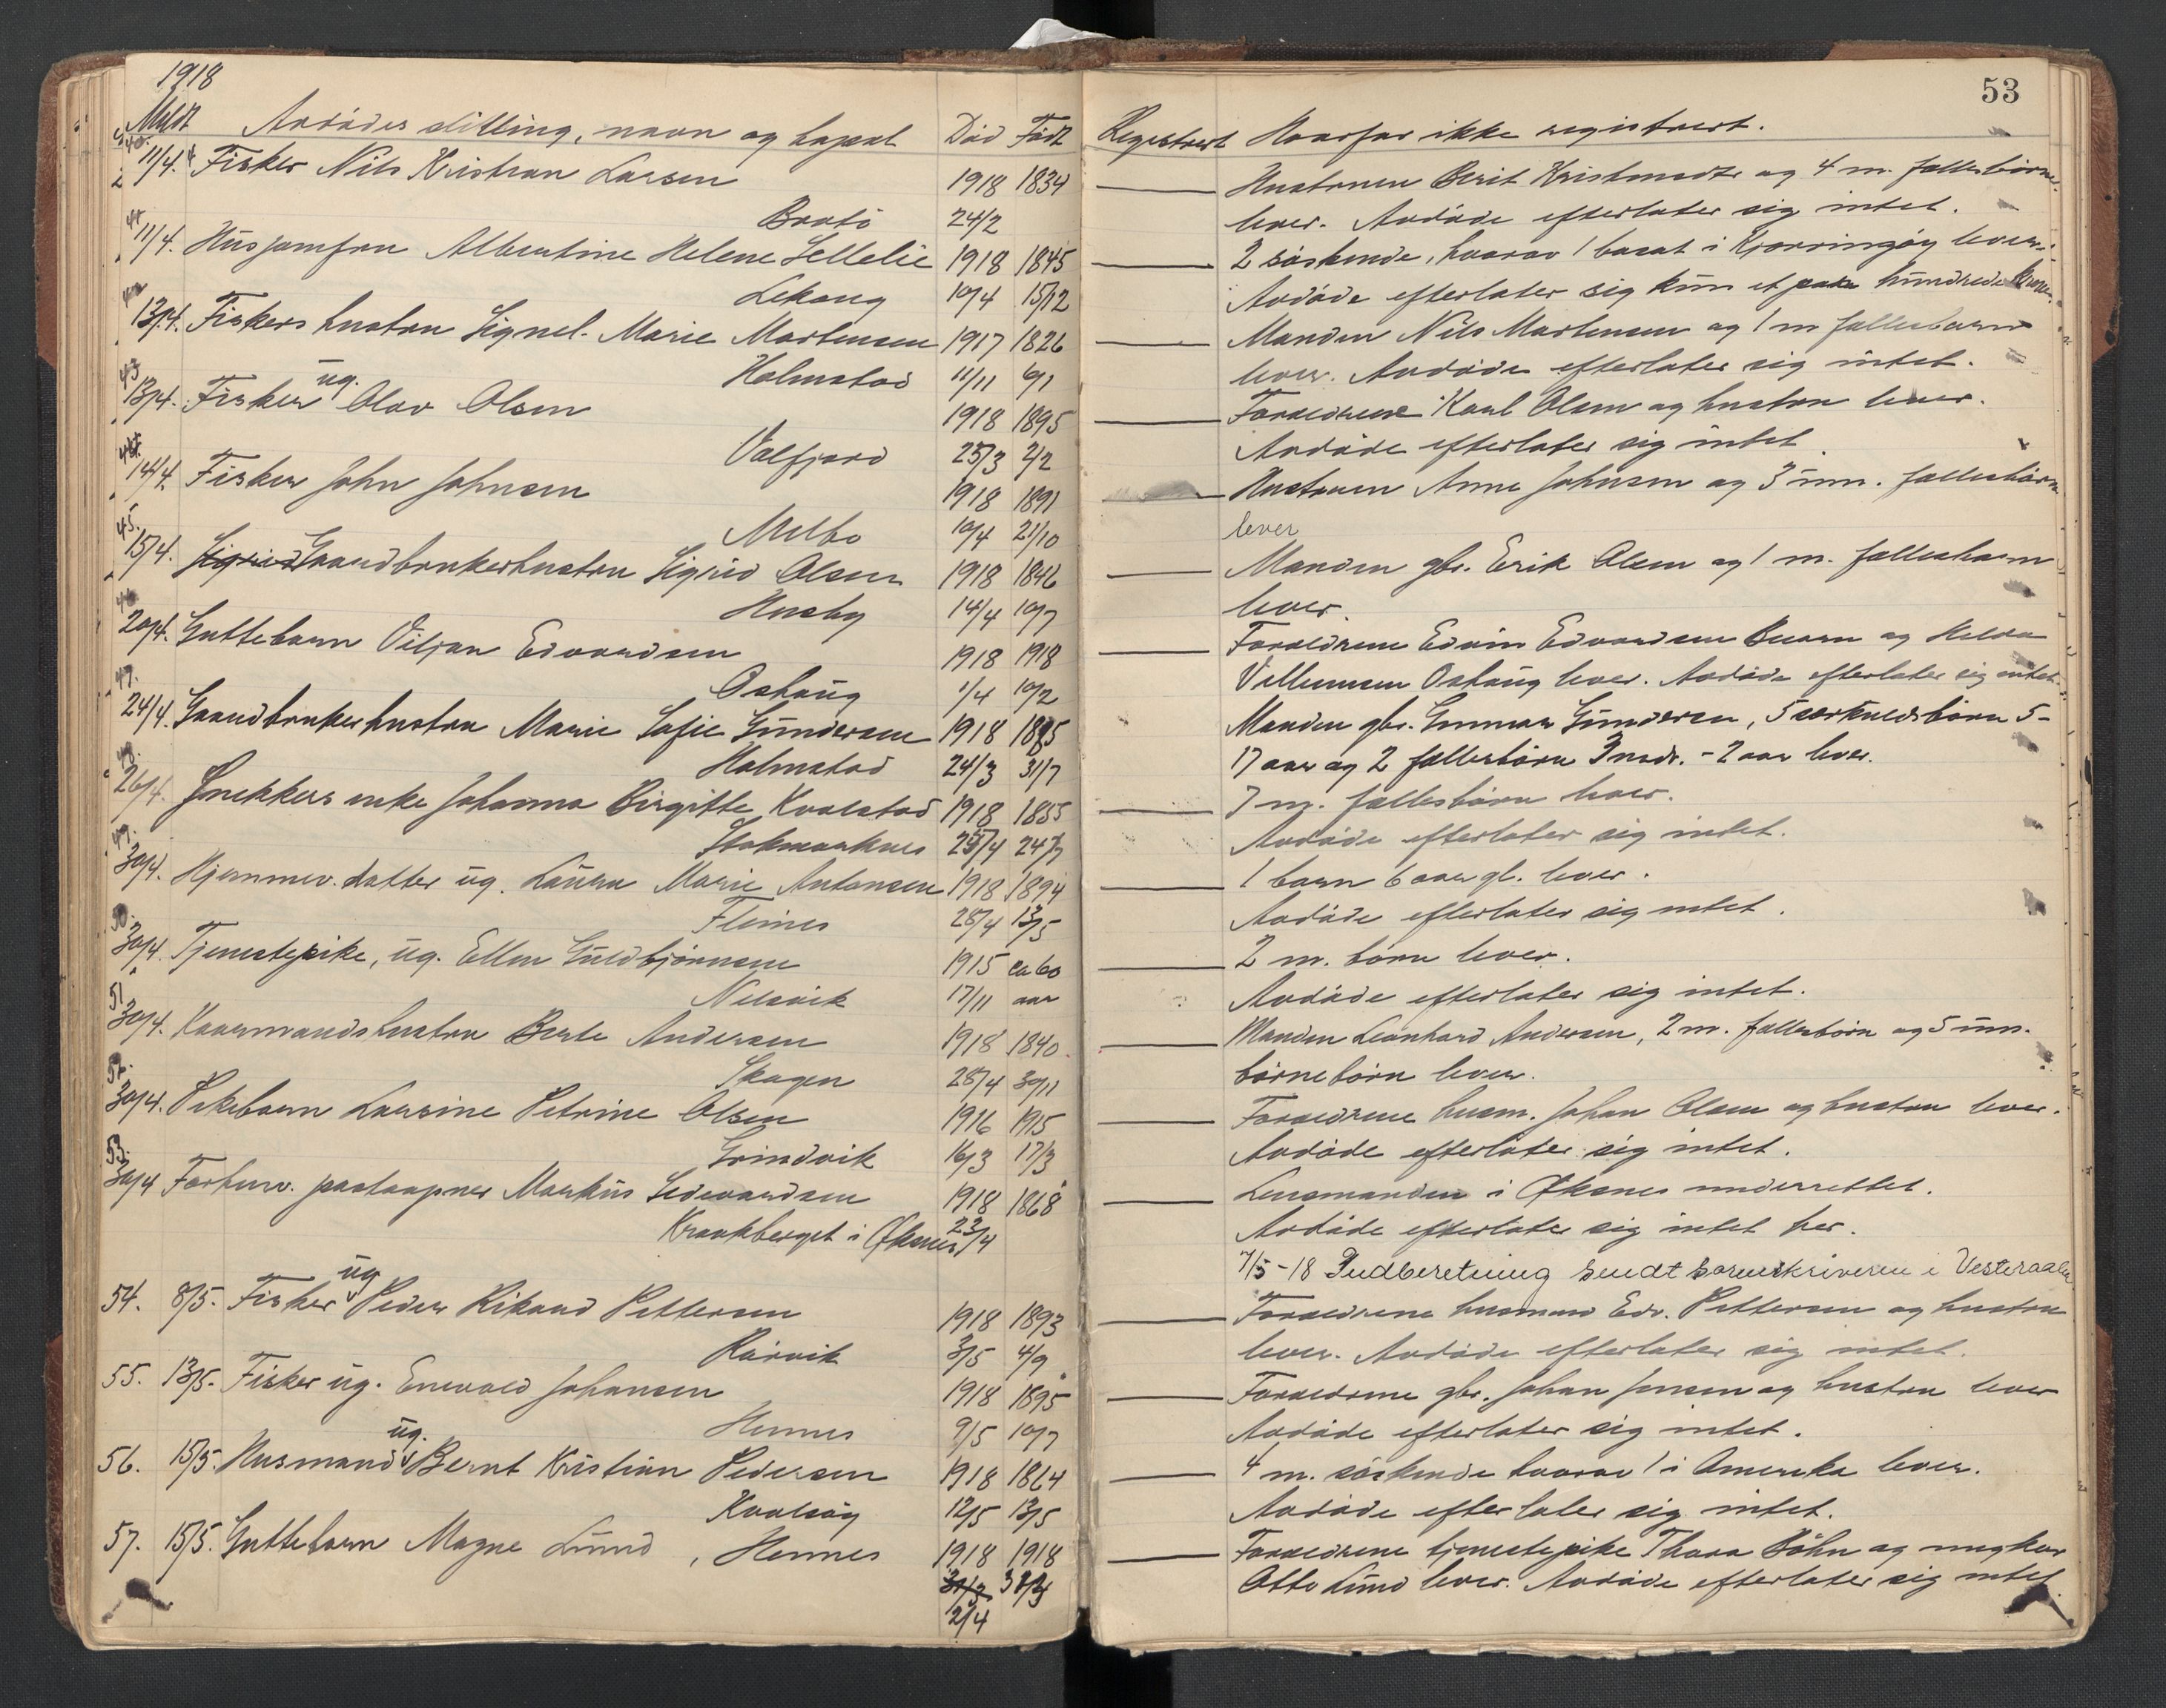 1918
53
Meldt Avdødes stilling, navn og bopæl Død Født Registrert Hvorfor ikke registrert.
40. 11/4. Fisker Nils Kristian Larsen 1918 1834 Hustruen Berit Kristmsdtr og 4 m. fællesbørn
Brotø 24/2 lever. Avdøde efterlater sig intet.
41. 11/4. Husjomfru Albertine Helene Sellelie 1918 1845 2 søskende, hvorav 1 bosat i Kjerringøy lever.
Lekang 10/4 15/12 Avdøde efterlater sig kun et par hundrede kroner.
42. 13/4. Fiskers hustru Signel. Marie Martensen 1917 1826 Manden Nils Martensen og 1 m fællesbarn
Holmstad 11/11 6/1 lever. Avdøde efterlater sig intet.
43 13/4. Fisker ug. Olav Olsen 1918 1895 Forældrene Karl Olsen og hustru lever.
Valfjord 23/3 2/2 Avdøde efterlater sig intet.
44. 14/4. Fisker John Johnsen 1918 1891 Hustruen Anna Johnsen og 3 um. fællesbørn
Melbo 10/4 21/10 lever
45. 15/4. Sigrid Gaardbrukerhustru Sigrid Olsen 1918 1846 Manden gbr. Erik Olsen og 1 m. fællesbarn
Husby 14/4 10/7 lever.
46 20/4. Guttebarn Viljan Edvardsen 1918 1918 Forældrene Edvin Edvardsen Buarn og Helda
Oshaug 1/4 10/2 Villumsen Oshaug lever. Avdøde efterlater sig intet.
47. 24/4. Gaardbrukerhustru Marie Sofie Gundersen 1918 1885 Manden gbr. Gunnar Gundersen, 5 særkuldsbørn 5-
Holmstad 24/3 31/7 17 aar og 2 fællesbørn 3 mdr. - 2 aar lever.
48. 26/4. Snekkers enke Johanna Birgitte Kvalstad 1918 1855 7 m. fællesbørn lever.
Stokmarknes 25/4 24/7 Avdøde efterlater sig intet.
49. 30/4. Hjemmev. datter ug. Laura Marie Antonsen 1918 1894 1 barn 6 aar gl. lever.
Fleines 28/4 13/5 Avdøde efterlater sig intet.
50. 30/4. Tjenestepike, ug. Ellen Guldbjørnsen 1915 ca 60 2 m. børn lever.
Nilsvik 17/11 aar Avdøde efterlater sig intet.
51 30/4. Kaarmandshustru Berte Andersen 1918 1840. Manden Leonhard Andersen, 2 m. fællesbørn og 5 um.
Skagen 28/4 30/11 børnebørn lever.
52. 30/4. Pikebarn Laurine Petrine Olsen 1916 1915 Forældrene husm. Johan Olsen og hustru lever.
Grindvik 16/3 17/3 Avdøde efterlater sig intet.
53. 30/4 Forhenv. postaapner Markus Sedvardsen 1918 1868 Lensmanden i Øksnes underrettet.
Kraakberget i Øksnes 23/4 Avdøde efterlater sig intet her.
7/5-18 Indberetning sendt sorenskriveren i Vesteraalen
54. 8/5. Fisker ug Peder Rikard Pettersen 1918 1893 Forældrene husmand Edv. Pettersen og hustru
Rørvik 3/5 4/9 lever. Avdøde efterlater sig intet.
55. 13/5. Fisker ug. Enevold Johansen 1918 1895 Forældrene gbr. Johan Jensen og hustru lever
Hennes 9/5 10/7 Avdøde efterlater sig intet.
56. 15/5. Husmand ug. Bernt Kristian Pedersen 1918 1864 4 m. søskende hvorav 1 i Amerika lever.
Kvalsøy 12/5 13/5 Avdøde efterlater sig intet.
57. 15/5. Guttebarn Magne Lund, Hennes 1918 1918 Forældrene tjenestepike Thora Bøhn og ungkar
31/3 31/3 Otto Lund lever. Avdøde efterlater sig intet.
2/4